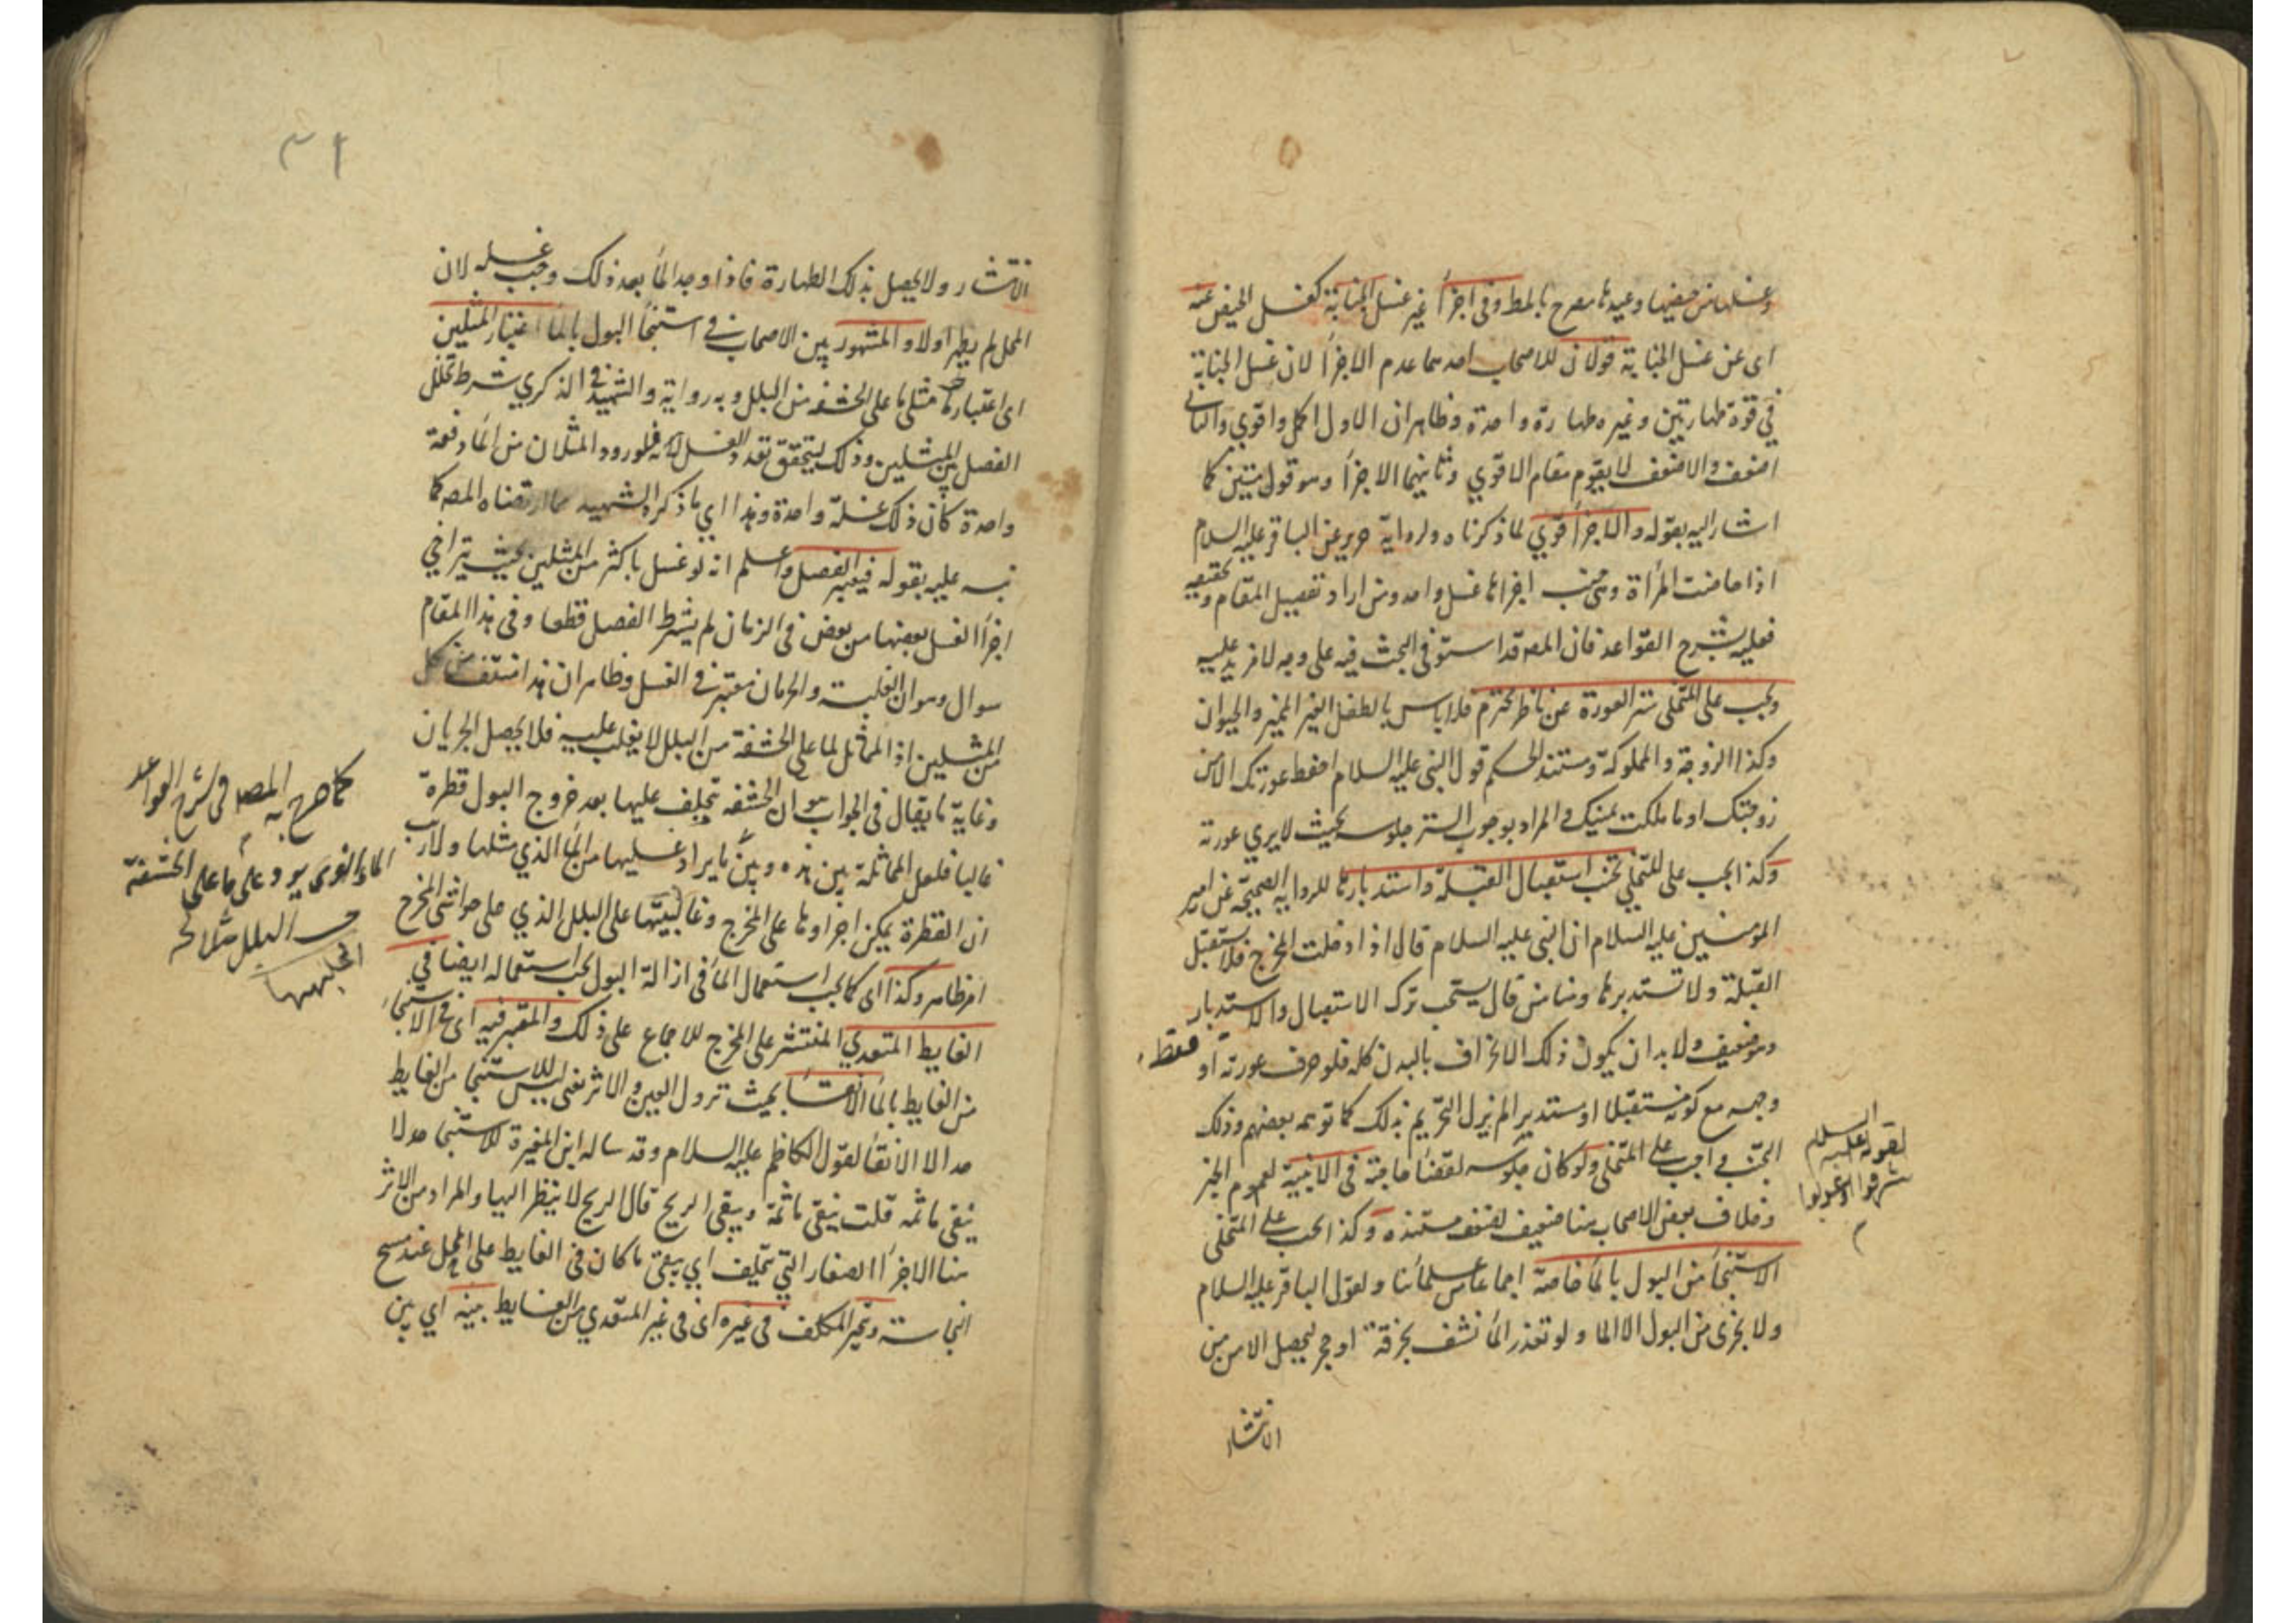 وغسلها من حيضها وعيدها مصرح بالمط وفى اجزأ غير غسل الجنابة كغسل الحيض عنه
اى عن غسل الجنابة قولان للاصحاب احدهما عدم الاجزأ لان غسل الجنابة
في قوة طهارتين وغيره طهارة واحدة وظاهر ان الاول اكمل واقوي والثانى
اضعف والاضعف لا يقوم مقام الاقوي وثانيهما الاجزأ وهو قول متين كما
اشار اليه بقوله والاجزأ قوي لما ذكرناه ولرواية حريز عن الباقر عليه السلام
اذا حاضت المرأة وهى جنب اجزاها غسل واحد ومن اراد تفصيل المقام وتحقيقه
فعليه بشرح القواعد فان المصه قد استوفى البحث فيه على وجه لا مزيد عليه
ويجب على المتخلى ستر العورة عن ناظر محترم فلا باس بالطفل الغير المميز والحيوان
وكذا الزوجة والمملوكة ومستند الحكم قول النبى عليه السلام احفظ عورتك الا من
زوجتك او ما ملكت يمينك والمراد بوجوب الستر جلوسه بحيث لا يري عورته
وكذا يجب على المتخلى تجنب استقبال القبلة واستدبارها للرواية الصحيحة عن امير
المؤمنين عليه السلام ان النبى عليه السلام قال اذا دخلت المخرج فلا تستقبل
القبلة ولا تستدبرها ومنا من قال يستحب ترك الاستقبال والاستدبار
وهو ضعيف ولا بد ان يكون ذلك الانحراف بالبدن كله فلو حرف عورته او فقط
وجهه مع كونه مستقبلا او مستدبرا لم يزل التحريم بذلك كما توهمه بعضهم وذلك
التجنب واجب على المتخلى ولو كان جلوسه لقضأ حاجته فى الابنية لعموم الخبر
لقوله عليه السلام
شرقوا او غربوا
وخلاف بعض الاصحاب هنا ضعيف لضعف مستنده وكذا يجب على المتخلى
الاستنجأ من البول بالمأ خاصة اجماعا من علمأئنا ولقول الباقر عليه السلام
ولا يجزى من البول الا الما ولو تعذر المأ نشف بخرقة او حجر ليحصل الامن من
الانتشار
٣١
الانتشار ولا يحصل بذلك الطهارة فاذا وجد المأ بعد ذلك وجب غسله لان
المحل لم يطهر اولا والمشهور بين الاصحاب فى استنجأ البول بالمأ اعتبار المثلين
اى اعتبار مثلى ما على الحشفه من البلل وبه رواية والشهيد فى الذكري شرط تخلل
الفصل بين المثلين وذلك ليتحقق تعدد الغسل لانه فلو ورد المثلان من المأ دفعة
واحدة كان ذلك غسلة واحدة وهذا اي ما ذكره الشهيد مما ارتضاه المصه كما
نبه عليه بقوله فيعتبر الفصل واعلم انه لو غسل باكثر من المثلين بحيث يتراخي
اجزأ الغسل بعضها من بعض فى الزمان لم يشترط الفصل قطعا وفى هذا المقام
سوال وهو ان الغلبة والجريان معتبر فى الغسل وظاهر ان هذا منتف من كل
من المثلين اذ المماثل لما على الحشفة من البلل لا يغلب عليه فلا يحصل الجريان
وغاية ما يقال فى الجواب هو ان الحشفه تتخلف عليها بعد خروج البول قطرة
غالبا فلعل المماثلة بين هذه وبين ما يراد غسلها من المأ الذي مثلها ولا ريب
ان القطرة يمكن اجراوها على المخرج وغالبيتها على البلل الذي على حواشى المخرج
امر ظاهر وكذا اى كما يجب استعمال المأ فى ازالة البول يجب استعماله ايضا في
الغايط المتعدي المنتشر على المخرج للاجماع على ذلك والمعتبر فيه اى فى الاستنجأ
من الغايط بالمأ الانقأ بحيث تزول العين والاثر نفى ليس للاستنجا من الغايط
حد الا الانقأ لقول الكاظم عليه السلام وقد ساله ابن المغيرة للاستنجا حد لا
ينقى ما ثمه قلت ينقى ما ثمة ويبقى الريح قال الريح لا ينظر اليها والمراد من الاثر
هنا الاجزأ الصغار التي تتخلف اي يبقى ما كان فى الغايط على المحل عند مسح
النجاسة ويتخير المكلف فى غيره اى فى غير المتعدي من الغايط بينه اي بين
كما صرح به المصه فى شرح القواعد
الماء الذى يرد على ما على الحشفة
من البلل مثلا له